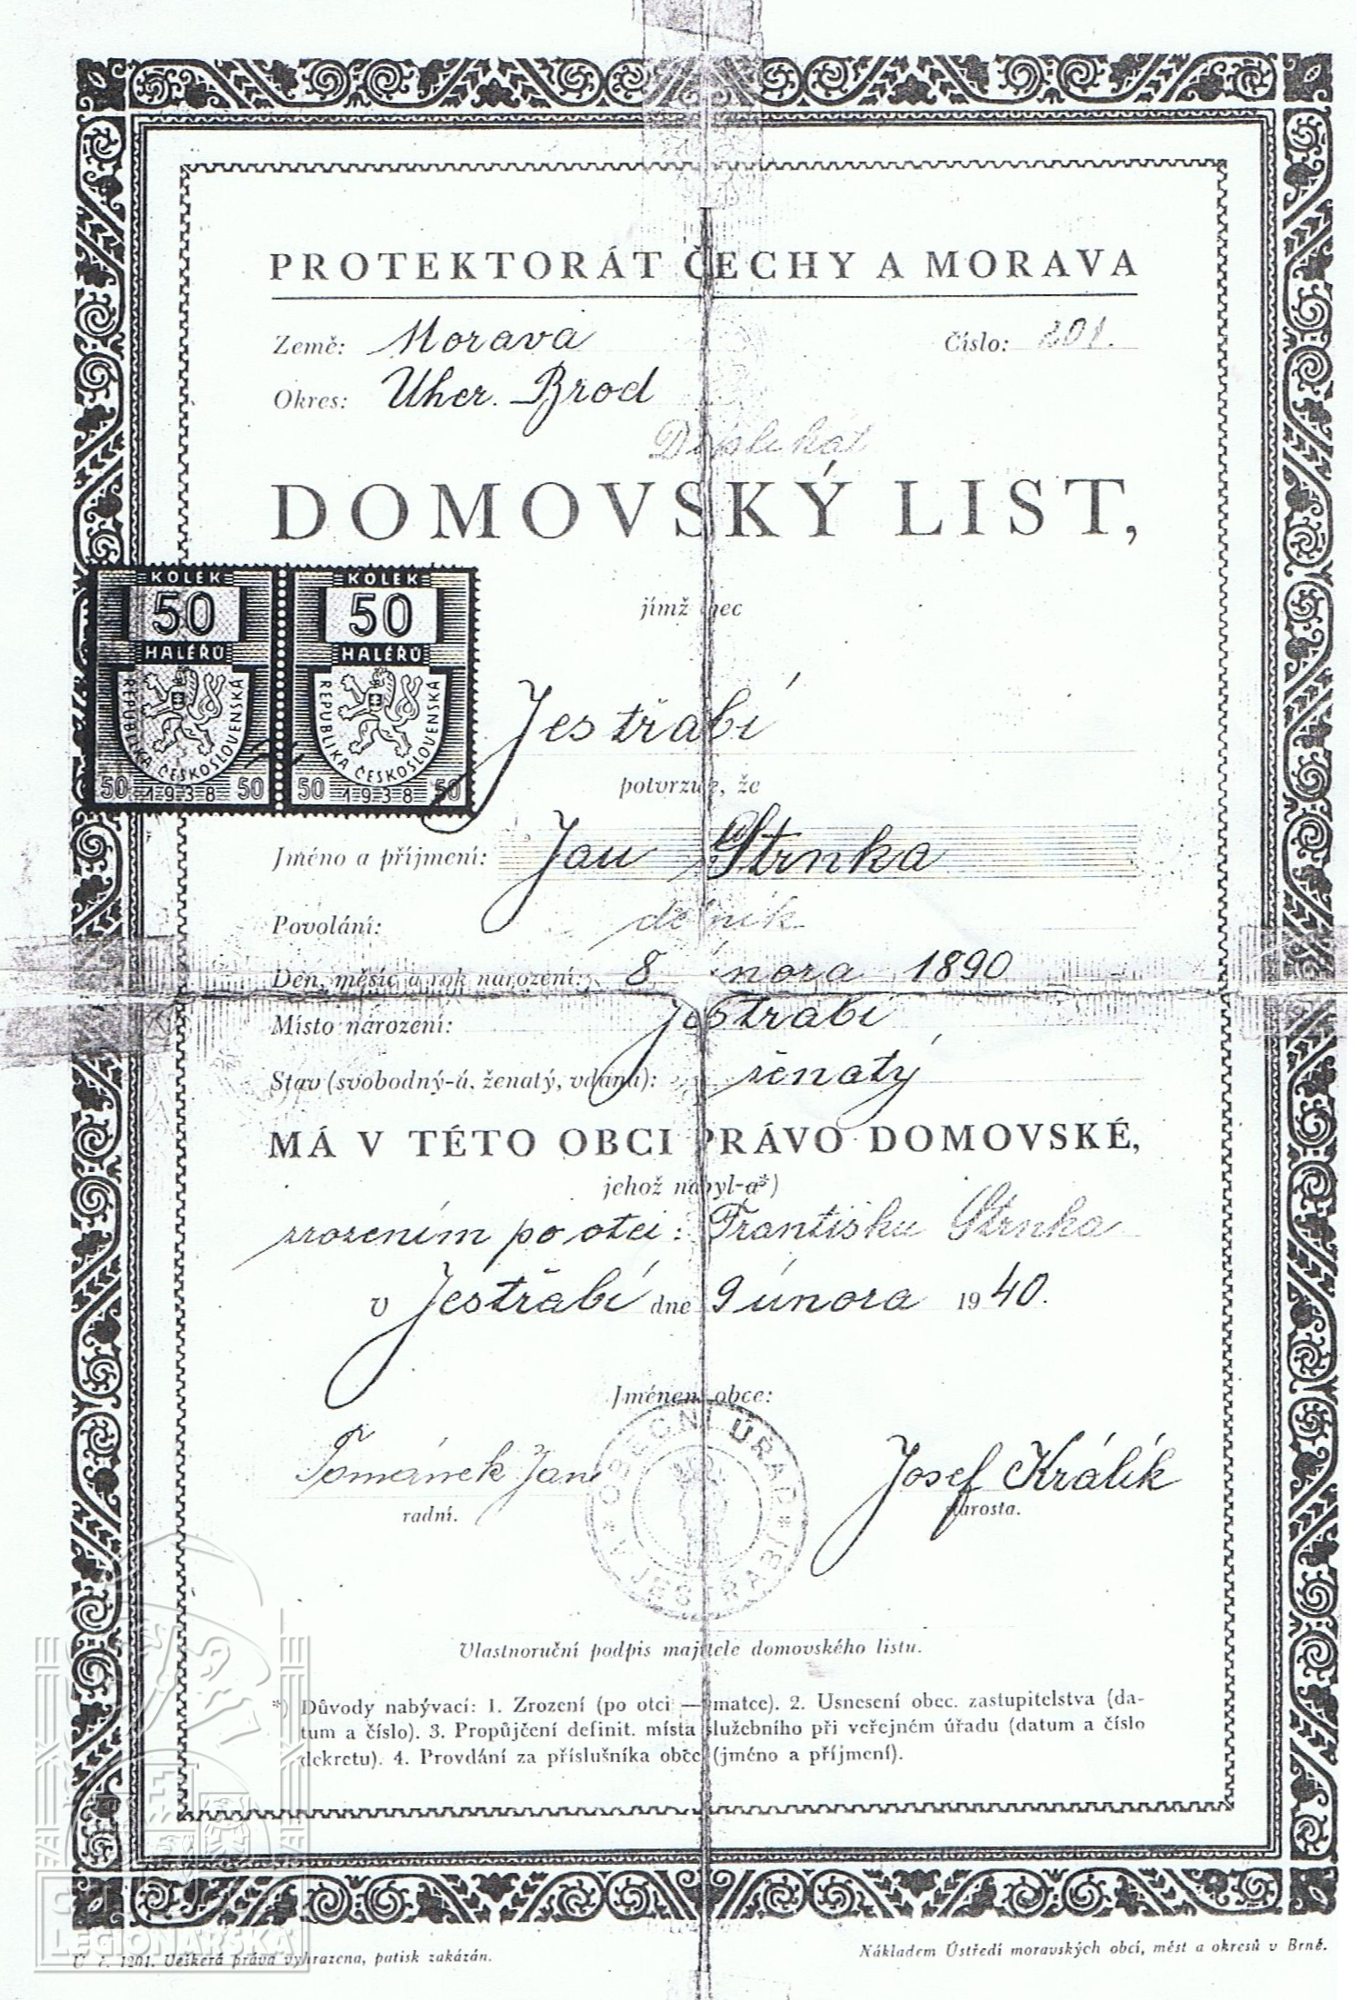 PROTEKTORÁT ČECHY A MORAVA
Země: Morava
Číslo: 201.
Okres: Uher. Brod
Duplikát
DOMOVSKÝ LIST,
KOLEK 50 HALÉŘŮ REPUBLIKA ČESKOSLOVENSKÁ 50 1938 50
KOLEK 50 HALÉŘŮ REPUBLIKA ČESKOSLOVENSKÁ 50 1938 50
jímž obec
Jestřabí
potvrzuje, že
Jméno a příjmení: Jan Strnka
Povolání: dělník
Den, měsíc a rok narození: 8 února 1890
Místo narození: Jestřabí
Stav (svobodný-á, ženatý, vdaná): ženatý
MÁ V TÉTO OBCI PRÁVO DOMOVSKÉ,
jehož nabyl-a*)
zrozením po otci: Františku Strnka
v Jestřabí dne 9 února 1940.
Jménem obce:
Tománek Jan
Josef Králík
radní.
starosta.
OBECNÍ ÚŘAD * V JESTŘABÍ *
Vlastnoruční podpis majitele domovského listu.
*) Důvody nabývací: 1. Zrození (po otci — matce). 2. Usnesení obec. zastupitelstva (da-
tum a číslo). 3. Propůjčení definit. místa služebního při veřejném úřadu (datum a číslo
dekretu). 4. Provdání za příslušníka obce (jméno a příjmení).
LEGIONÁŘSKÁ
Ú č. 1201. Veškerá práva vyhrazena, patisk zakázán.
Nákladem Ústředí moravských obcí, měst a okresů v Brně.